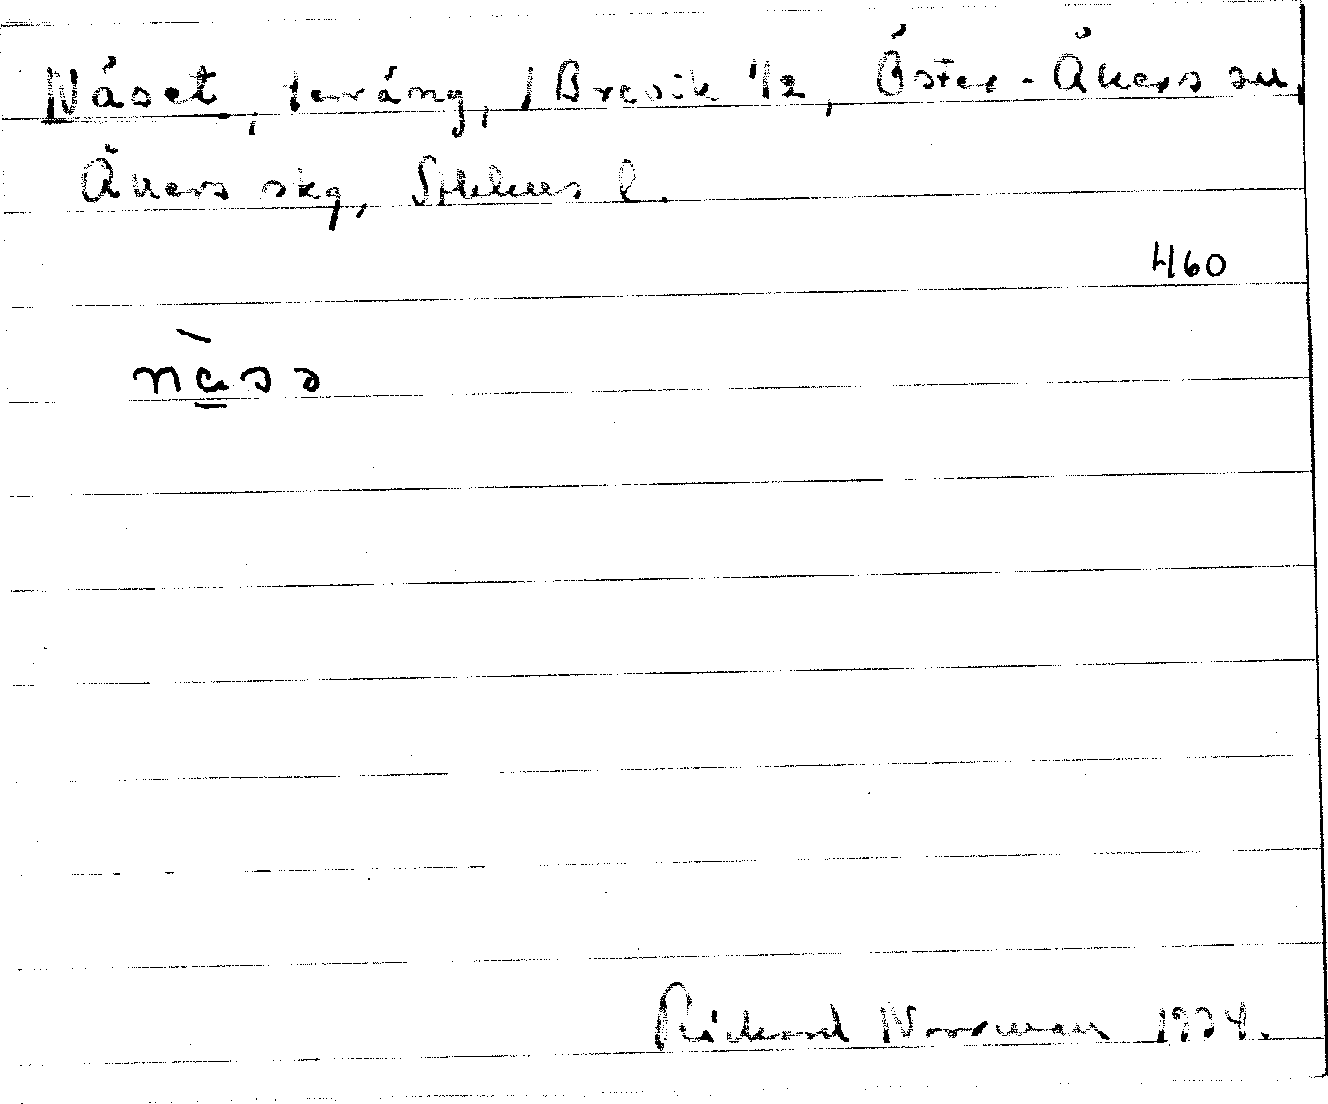 Näset, terräng, / Brevik 1/2, Öster-Åkers sn,
Åkers skg, Sthlms l.
460
nä̀sə
Rickard Norrman 1934.